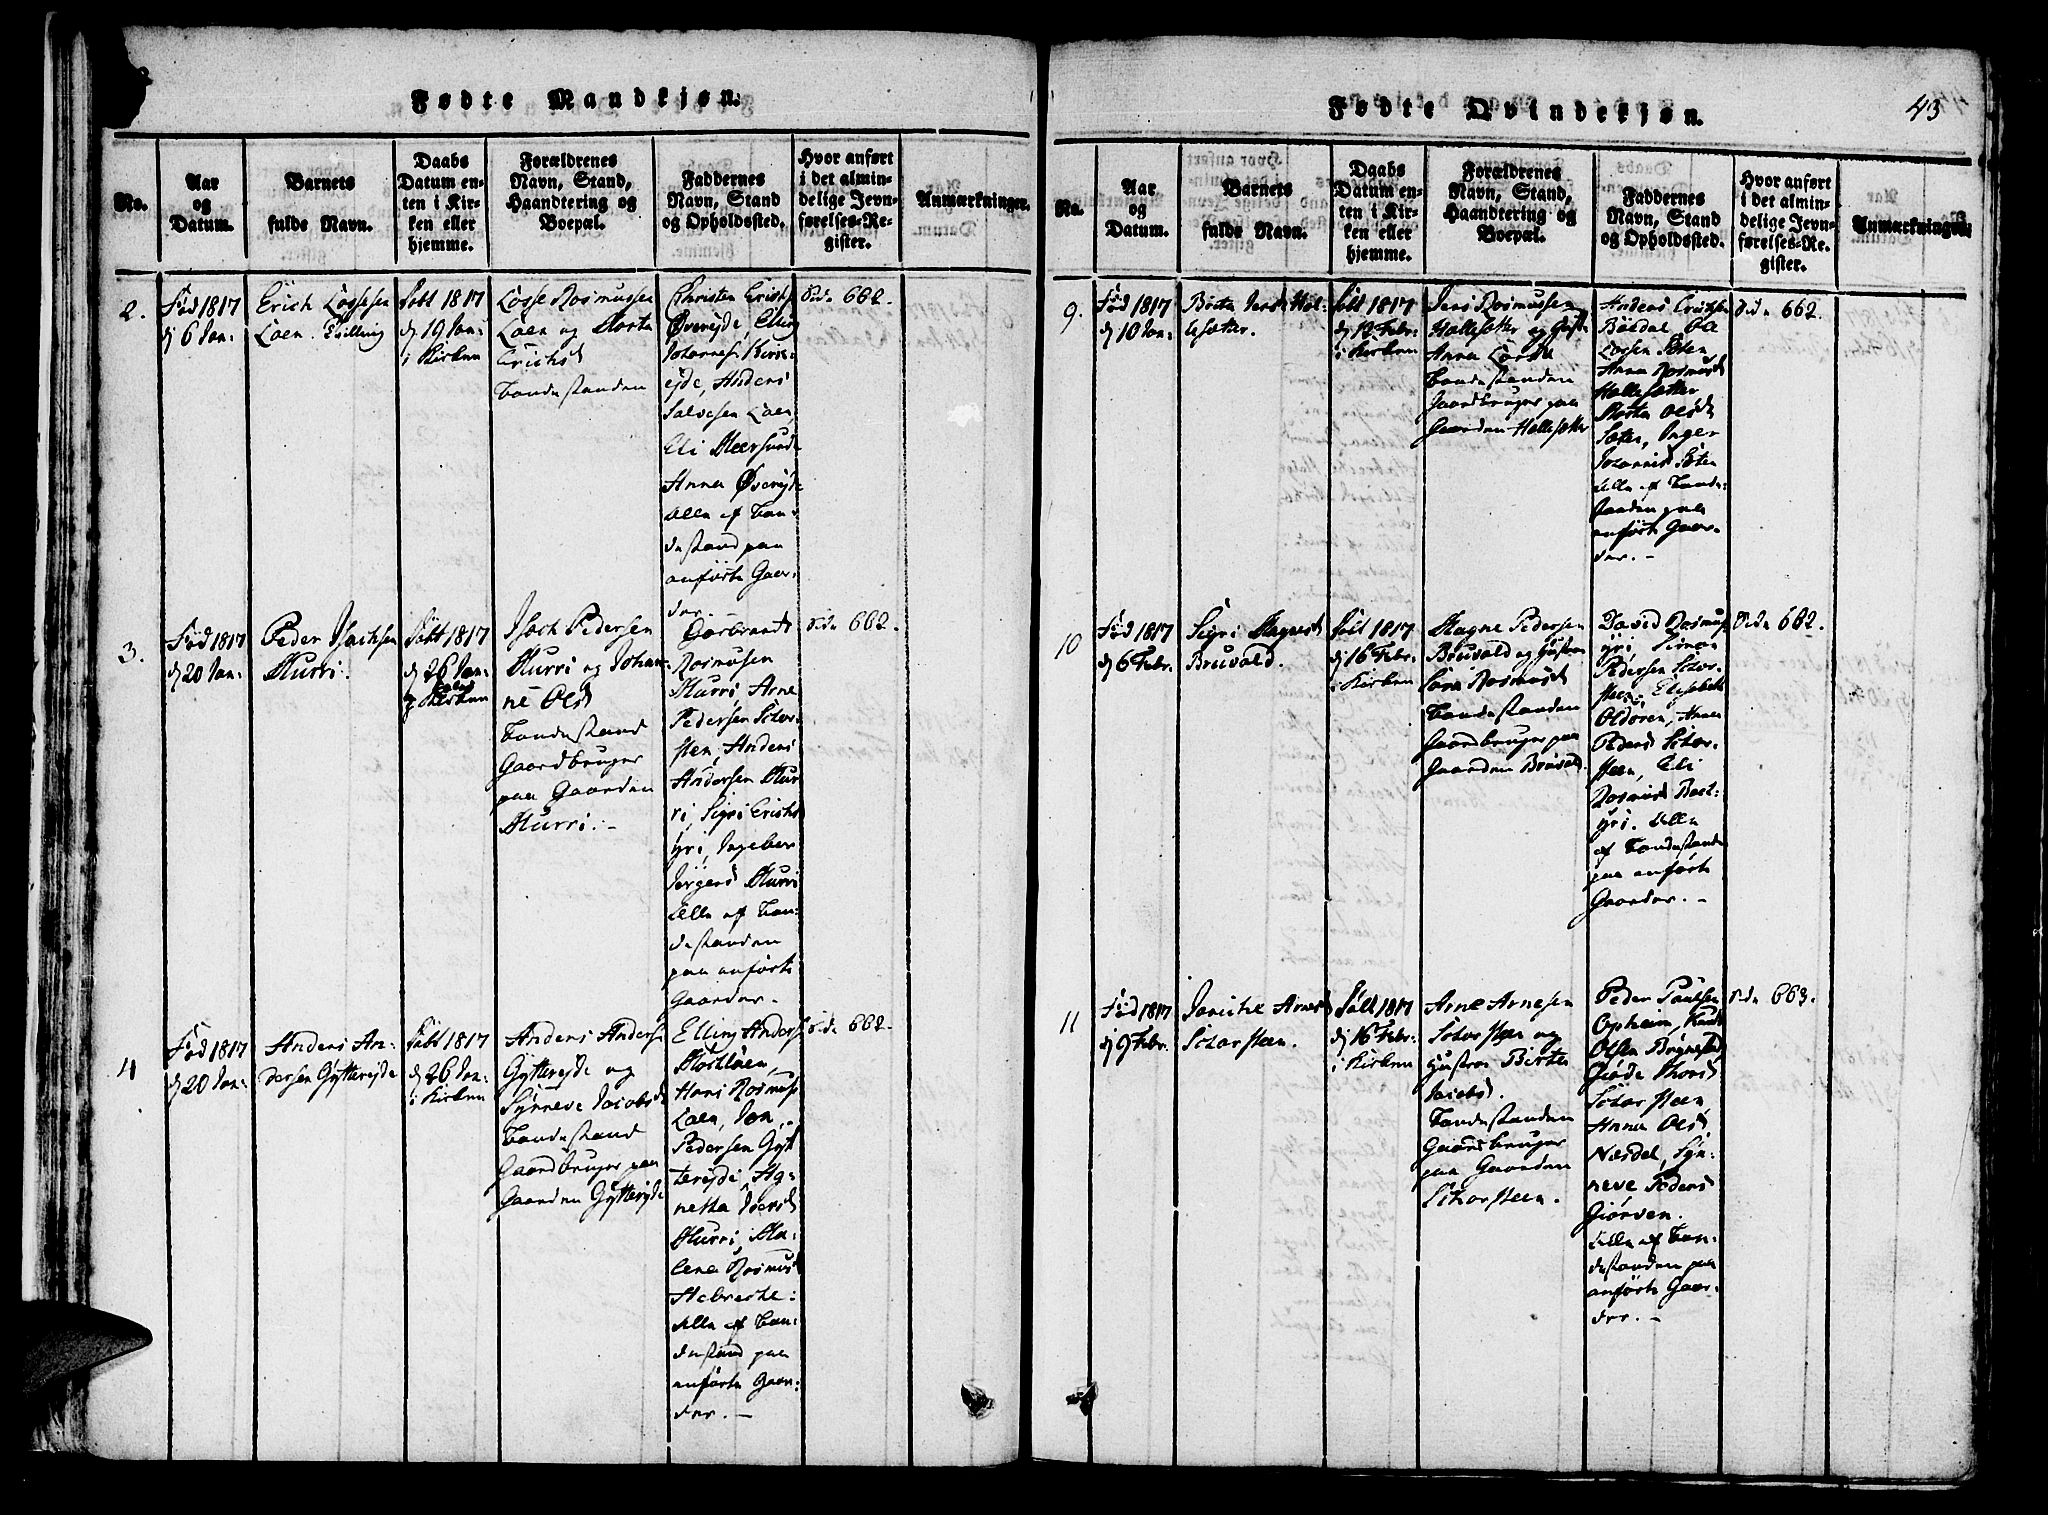 Fødte Mandkjøn.
No.
Aar
og
Datum.
Barnets
fulde Navn.
Daabs
Datum en-
ten i Kir-
ken eller
hjemme.
Forældrenes
Navn, Stand,
Haandtering og
Boepæl.
Faddernes
Navn, Stand
og Opholdssted.
Hvor anført
i det almin-
delige Jevn-
førelses-Re-
gister.
Anmærkninger.
2.
Fød 1817
d 6 Jan:
Erich Lassesen
Loen.
Døbt 1817
d 19 Jan:
i Kirken
Lasse Rasmussen
Loen og Marta
Erichsd
bondestanden
Christen Erichs
Øvreeide, Elling
Johannes
Anders
Salvesen Loen
Eli
Anna
Alle af bon-
destand paa
anførte Gaar-
der
Side 662.
3.
Fød 1817
d 20 Jan:
Peder Isachsen
Murri.
Døbt 1817
d 26 Jan:
Isach Pedersen
Murri og Johan-
ne Olsd
bondestand
Gaardbruger
paa Gaarden
Murri. -
Gurbrand
Rasmusen
Murri Arne
Pedersen Schor-
sten, Anders
Andersen Mur-
ri, Sigri Erichs
yri, Ingebor
Jørgensd Murri
Alle af bon-
destanden
paa anførte
Gaarder.
Side 662.
4
Fød 1817
d 20 Jan:
Anders An-
dersen Gytterejde
Døbt 1817
d 26 Jan:
i Kirken
Anders Anders
Gytterejde og
Synneve Jacobsd
bondestand
Gaardbruger paa
Gaarden Gytterejde
Elling Anders
Hans Rasmus
Loen, Jon
Pedersen Gyt
terejde, Ag-
netha Iversd
Murri, Ma-
lena Rasmusd
Alle af bon-
destand paa
anførte Gaar-
der. -
Side 662.
Fødte Qvindekjøn.
43
No.
Aar
og
Datum.
Barnets
fulde Navn.
Daabs
Datum en-
ten i Kir-
ken eller
hjemme.
Forældrenes
Navn, Stand,
Haandtering og
Boepæl.
Faddernes
Navn, Stand
og Opholdssted.
Hvor anført
i det almin-
delige Jevn-
førelses-Re-
gister.
Anmærkninger.
9.
Fød 1817
d 10 Jan:
Birta Jensd Hol-
lsæter.
Døbt 1817
d 12 Febr:
i Kirken
Jens Rasmussen
Hollesæter og Gust
Anna Larsd
bondestanden
Gaardbruger paa
Gaarden Hollesæter
Anders Erichsen
Bødal Ole
Larsen Sæten
Anna Rasmusd
Hollesæter
Marta Olsd
Sæten, Inger
Johannisd Sæten
Alle af bonde-
standen paa
anførte Gaar-
der. -
Side 662.
10
Fød 1817
d 6 Febr:
Sigri Magnesd
Bruvold.
Døbt 1817
d 16 Febr:
i Kirken
Magne Pedersen
Bruvold og Gustru
Sara Rasmusd
bondestanden
Gaardbruger paa
Gaarden Bruvold.
David Rasmus
yri, Simon
Pedersen Schor-
steen, Elisabeth
Oldøren, Anna
Pedersd Schor-
steen, Eli
Rasmusd
yri. Alle
af bondestanden
paa anførte
Gaarder. -
Side 662.
11
Fød 1817
d 9 Febr.
Janiche Arnesd
Schorsteen.
Døbt 1817
d 16 Febr:
i Kirken
Arne Arnesen
Schorsteen og
Hustroe Birte
Jacobsd.
bondestanden
Gaardbruger
paa Gaarden
Schorsteen.
Peder Paulsen
Opheim, Knud
Olsen
Giøde Thorsd
Schorsteen
Anna Olsd
Næsdel, Syn-
neve Pedersd
Giørven.
Alle af bon-
destanden paa
anførte Gaar-
der. -
Side 663.